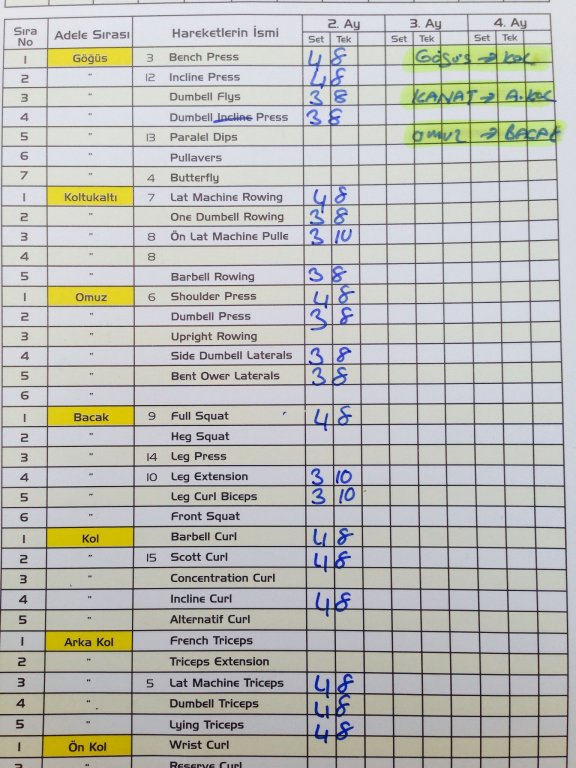 Sıra No Adele Sırası Hareketlerin İsmi 2. Ay 3. Ay 4. Ay
Set Tek Set Tek Set Tek
1 Göğüs 3 Bench Press 4 8 GÖĞÜS → KOL
2 " 12 Incline Press 4 8
3 " Dumbell Flys 3 8 KANAT → A.KOL
4 " Dumbell Incline Press 3 8
5 " 13 Paralel Dips OMUZ → BACAK
6 " Pullavers
7 " 4 Butterfly
1 Koltukaltı 7 Lat Machine Rowing 4 8
2 " One Dumbell Rowing 3 8
3 " 8 Ön Lat Machine Pulle 3 10
4 " 8
5 " Barbell Rowing 3 8
1 Omuz 6 Shoulder Press 4 8
2 " Dumbell Press 3 8
3 " Upright Rowing
4 " Side Dumbell Laterals 3 8
5 " Bent Ower Laterals 3 8
6 "
1 Bacak 9 Full Squat 4 8
2 " Heg Squat
3 " 14 Leg Press
4 " 10 Leg Extension 3 10
5 " Leg Curl Biceps 3 10
6 " Front Squat
1 Kol Barbell Curl 4 8
2 " 15 Scott Curl 4 8
3 " Concentration Curl
4 " Incline Curl 4 8
5 " Alternatif Curl
1 Arka Kol French Triceps
2 " Triceps Extension
3 " 5 Lat Machine Triceps 4 8
4 " Dumbell Triceps 4 8
5 " Lying Triceps 4 8
1 Ön Kol Wrist Curl
2 " Reserve Curl